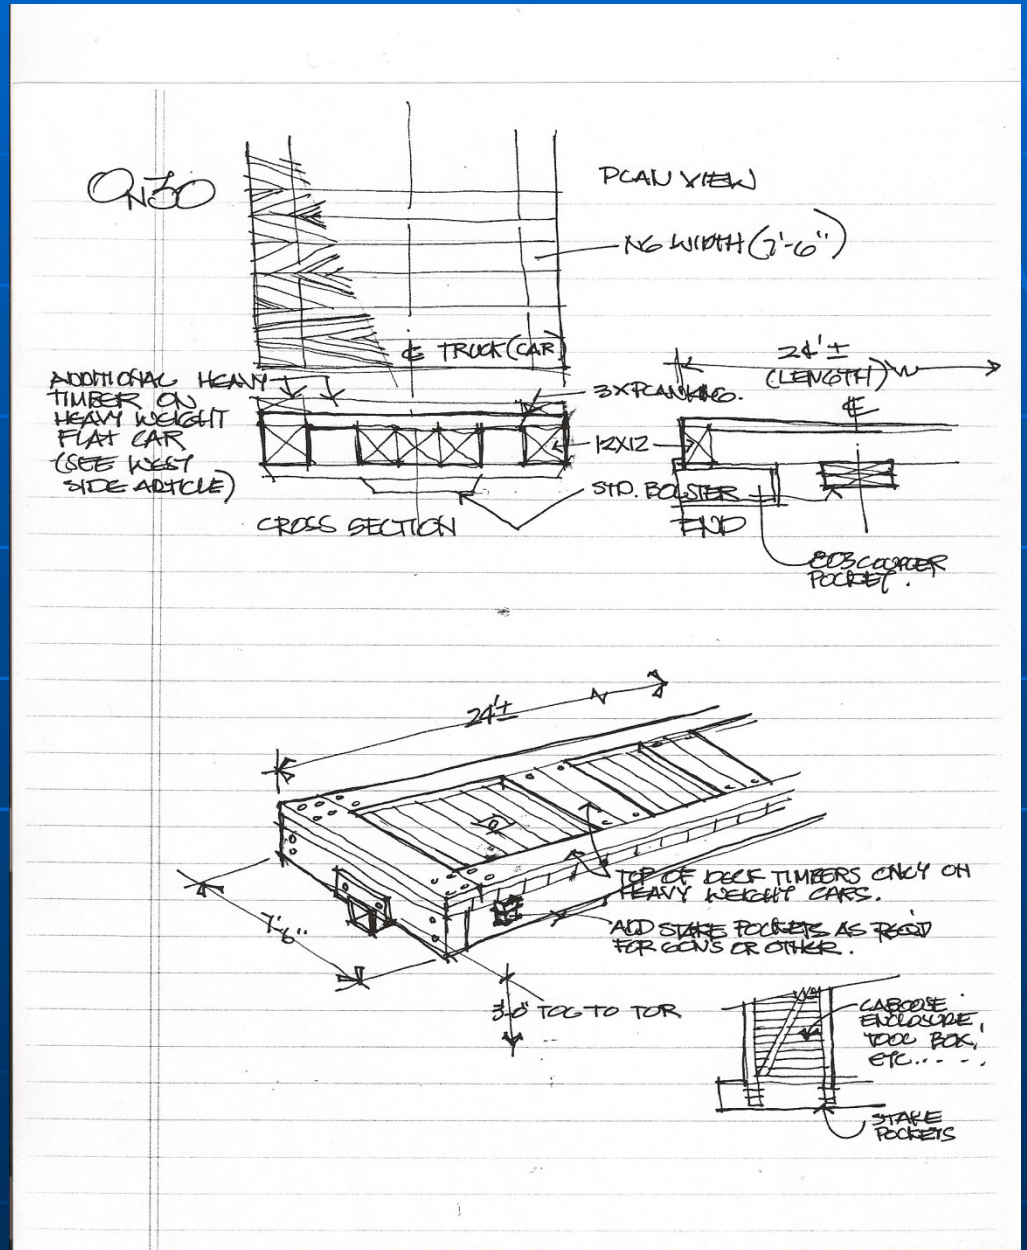 ON30
PLAN VIEW
NG WIDTH (7'-6")
℄ TRUCK (CAR)
24'±
(LENGTH)
℄
ADDITIONAL HEAVY
TIMBER ON
HEAVY WEIGHT
FLAT CAR
(SEE WEST
SIDE ARTICLE)
3X PLANKING.
12X12
STD. BOLSTER
CROSS SECTION
END
803 COUPLER
POCKET.
24'±
7'-6"
TOP OF DECK TIMBERS ONLY ON
HEAVY WEIGHT CARS.
ADD STAKE POCKETS AS REQD
FOR GONS OR OTHER.
3'-0" TOC TO TOR
CABOOSE
ENCLOSURE,
TOOL BOX,
ETC.....
STAKE
POCKETS